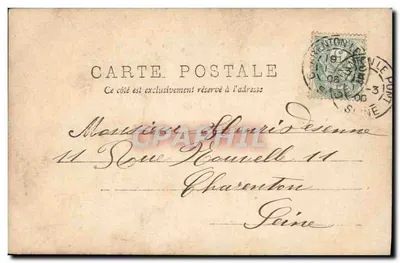 CARTE POSTALE
Ce côté est exclusivement réservé à l'adresse
CHARENTON LE PONT
SEINE
Monsieur
11 Rue Nouvelle 11
Charenton
Seine